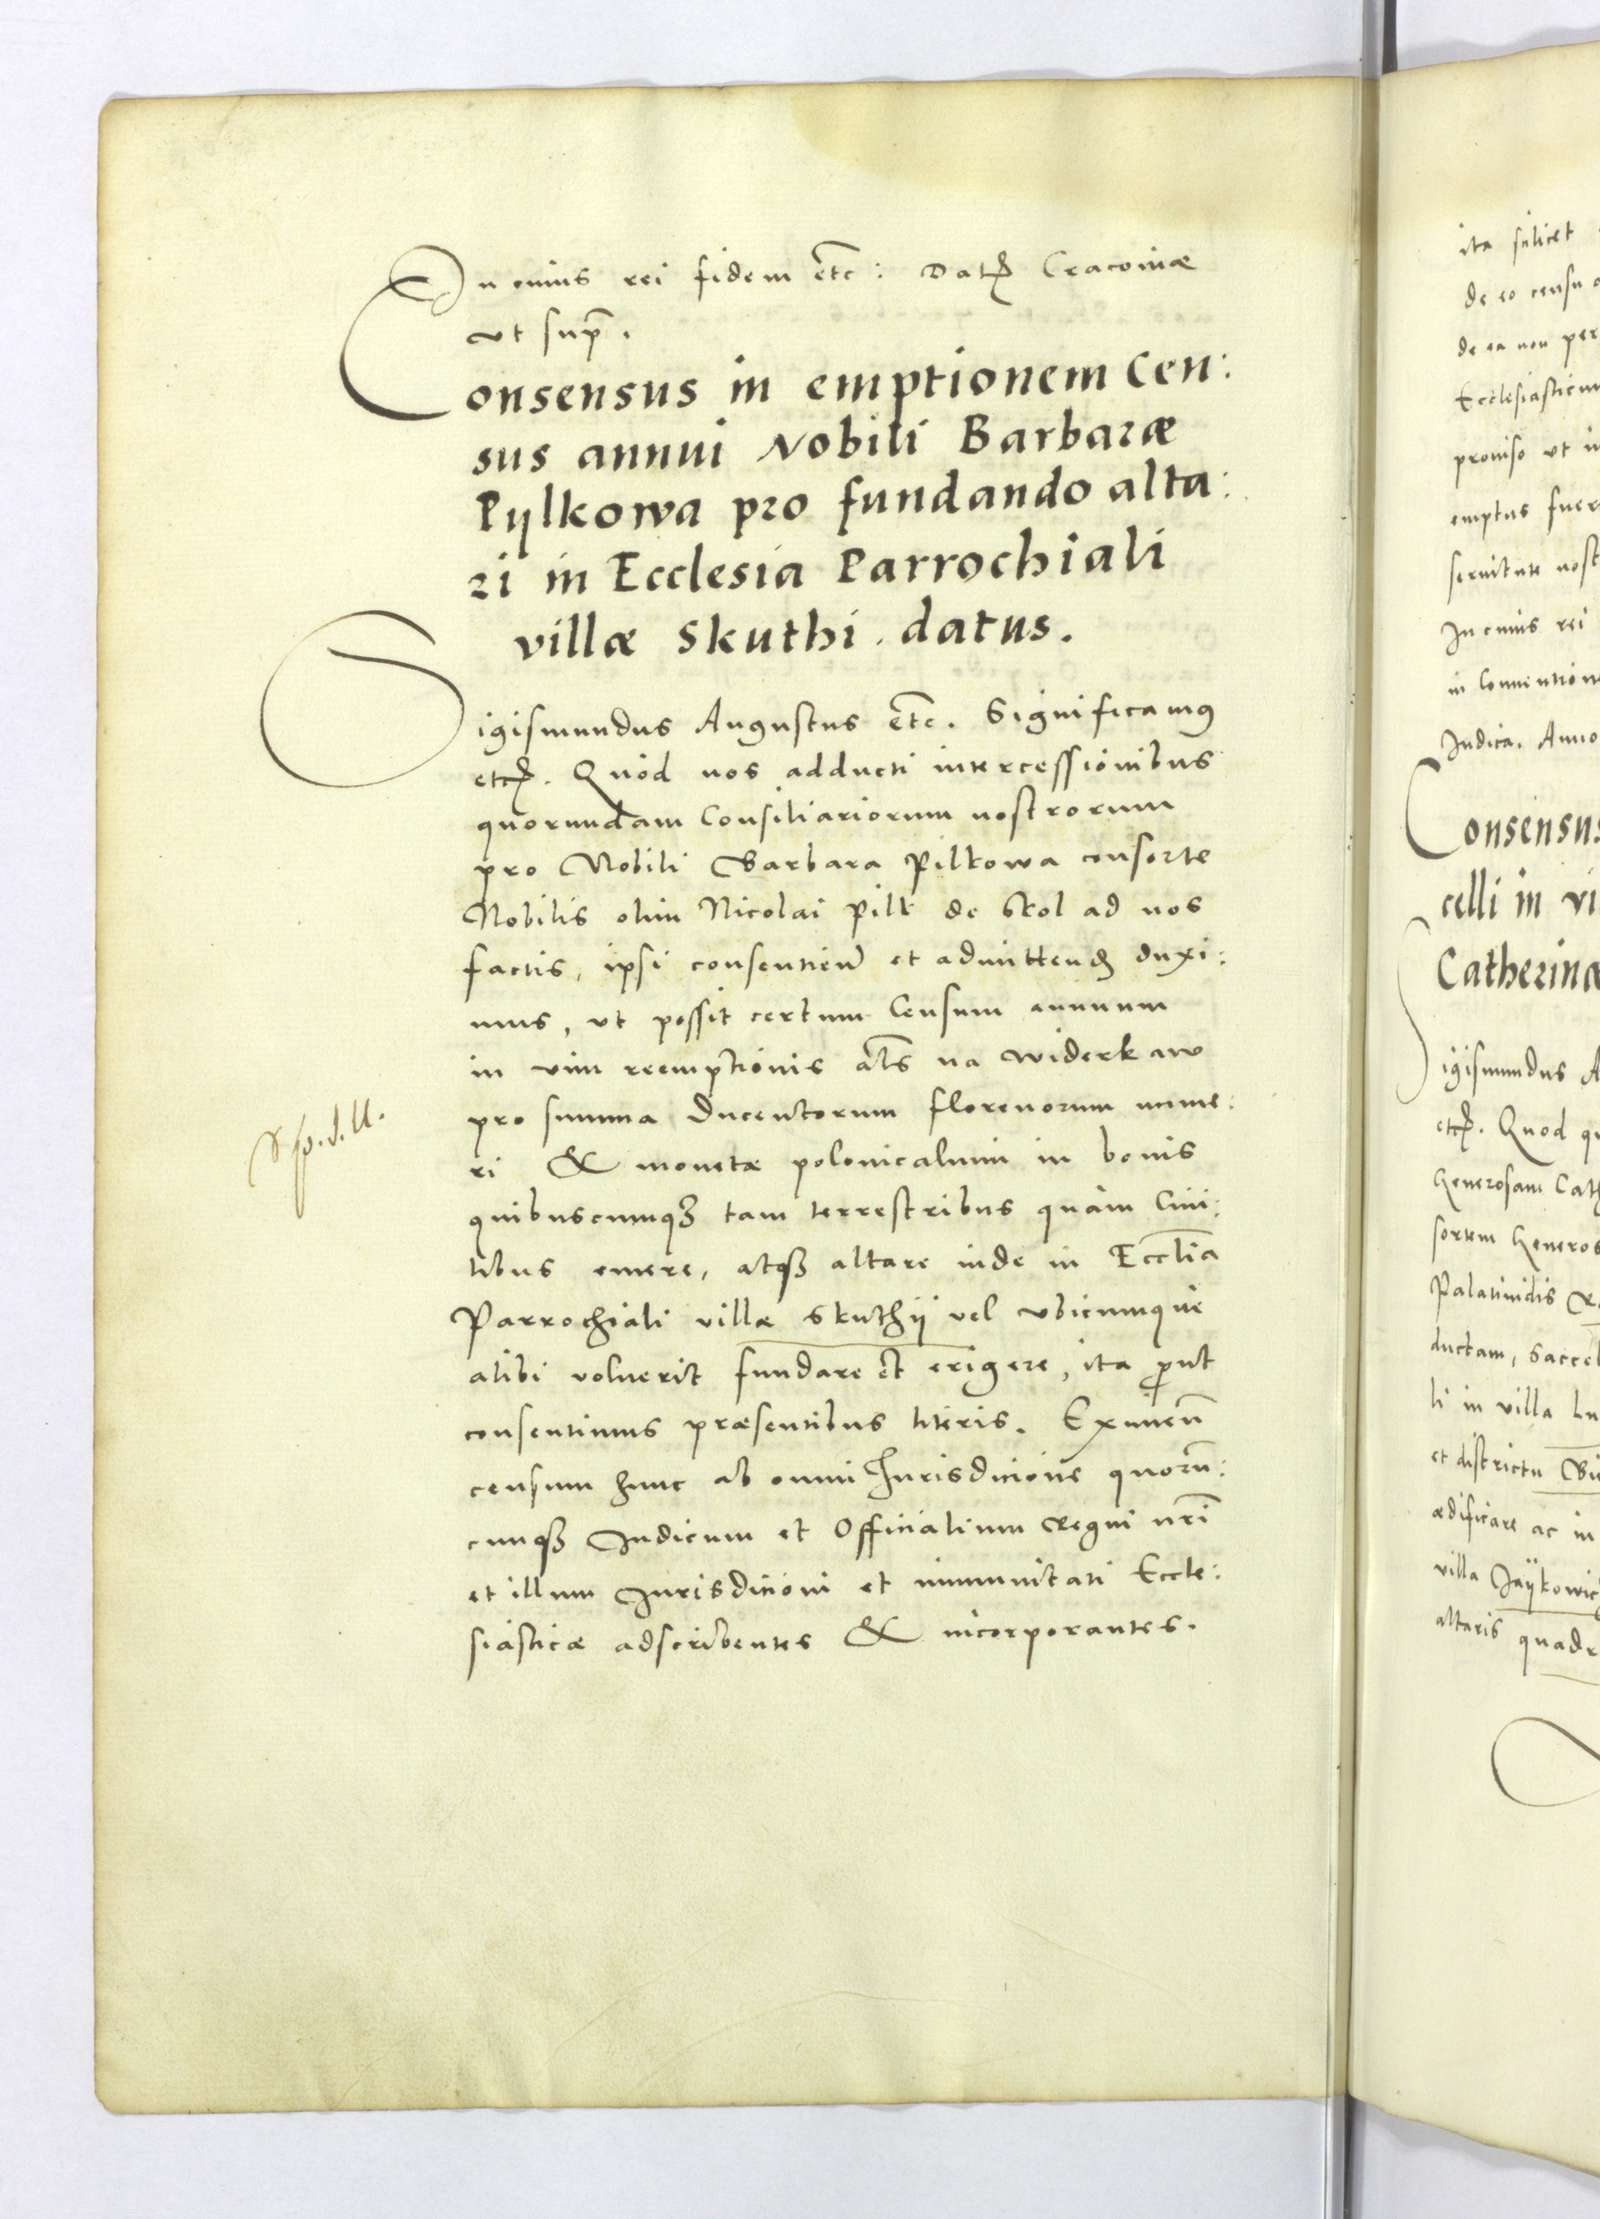 In cuius rei fidem etc: Dat Cracoviæ
ut sup.
Consensus in emptionem Cen:
sus annui Nobili Barbaræ
Pÿlkowa pro fundando alta:
ri in Ecclesia Parrochiali
villæ Skuthi datus.
Sigismundus Augustus etc. Significamus
etc. Quod nos adducti intercessionibus
quorundam Consiliariorum nostrorum
pro Nobili Barbara Pilkowa consorte
Nobilis olim Nicolai Pilk de Skol ad nos
factis, ipsi consentien et admitten duxi:
mus, ut possit certum Censum annuum
in vim reemptionis als na widerkaw
pro summa ducentorum florenorum nume:
ri & monetæ polonicalium in bonis
quibuscumq tam terrestribus quàm Civi:
libus emere, atq altare inde in Ecclia
Parrochiali villæ Skuthÿ vel ubicumque
alibi voluerit fundare et erigere, ita prout
consentimus præsentibus literis. Eximen
censum hunc ab omni Jurisdicione quorum:
cunq Judicum et Officialium Regni nri
et illum Jurisdicioni et immunitati Eccle:
siasticæ adscribentes & incorporantes.
ita scilicet
de eo censu
de ea non per
Ecclesiasticum
proviso ut in
emptus fuer
servitute nost
In cuius rei
in Conventione
Judica. Anno
Consensus
celli in vi
Catherinæ
Sigismundus A
etc. Quod qu
Generosam Cath
sortem Generos
Palatinidis Ra
ductam, Saccel
li in villa Lu
et districtu
ædificare ac in
villa Jaÿkowic
altaris quadr